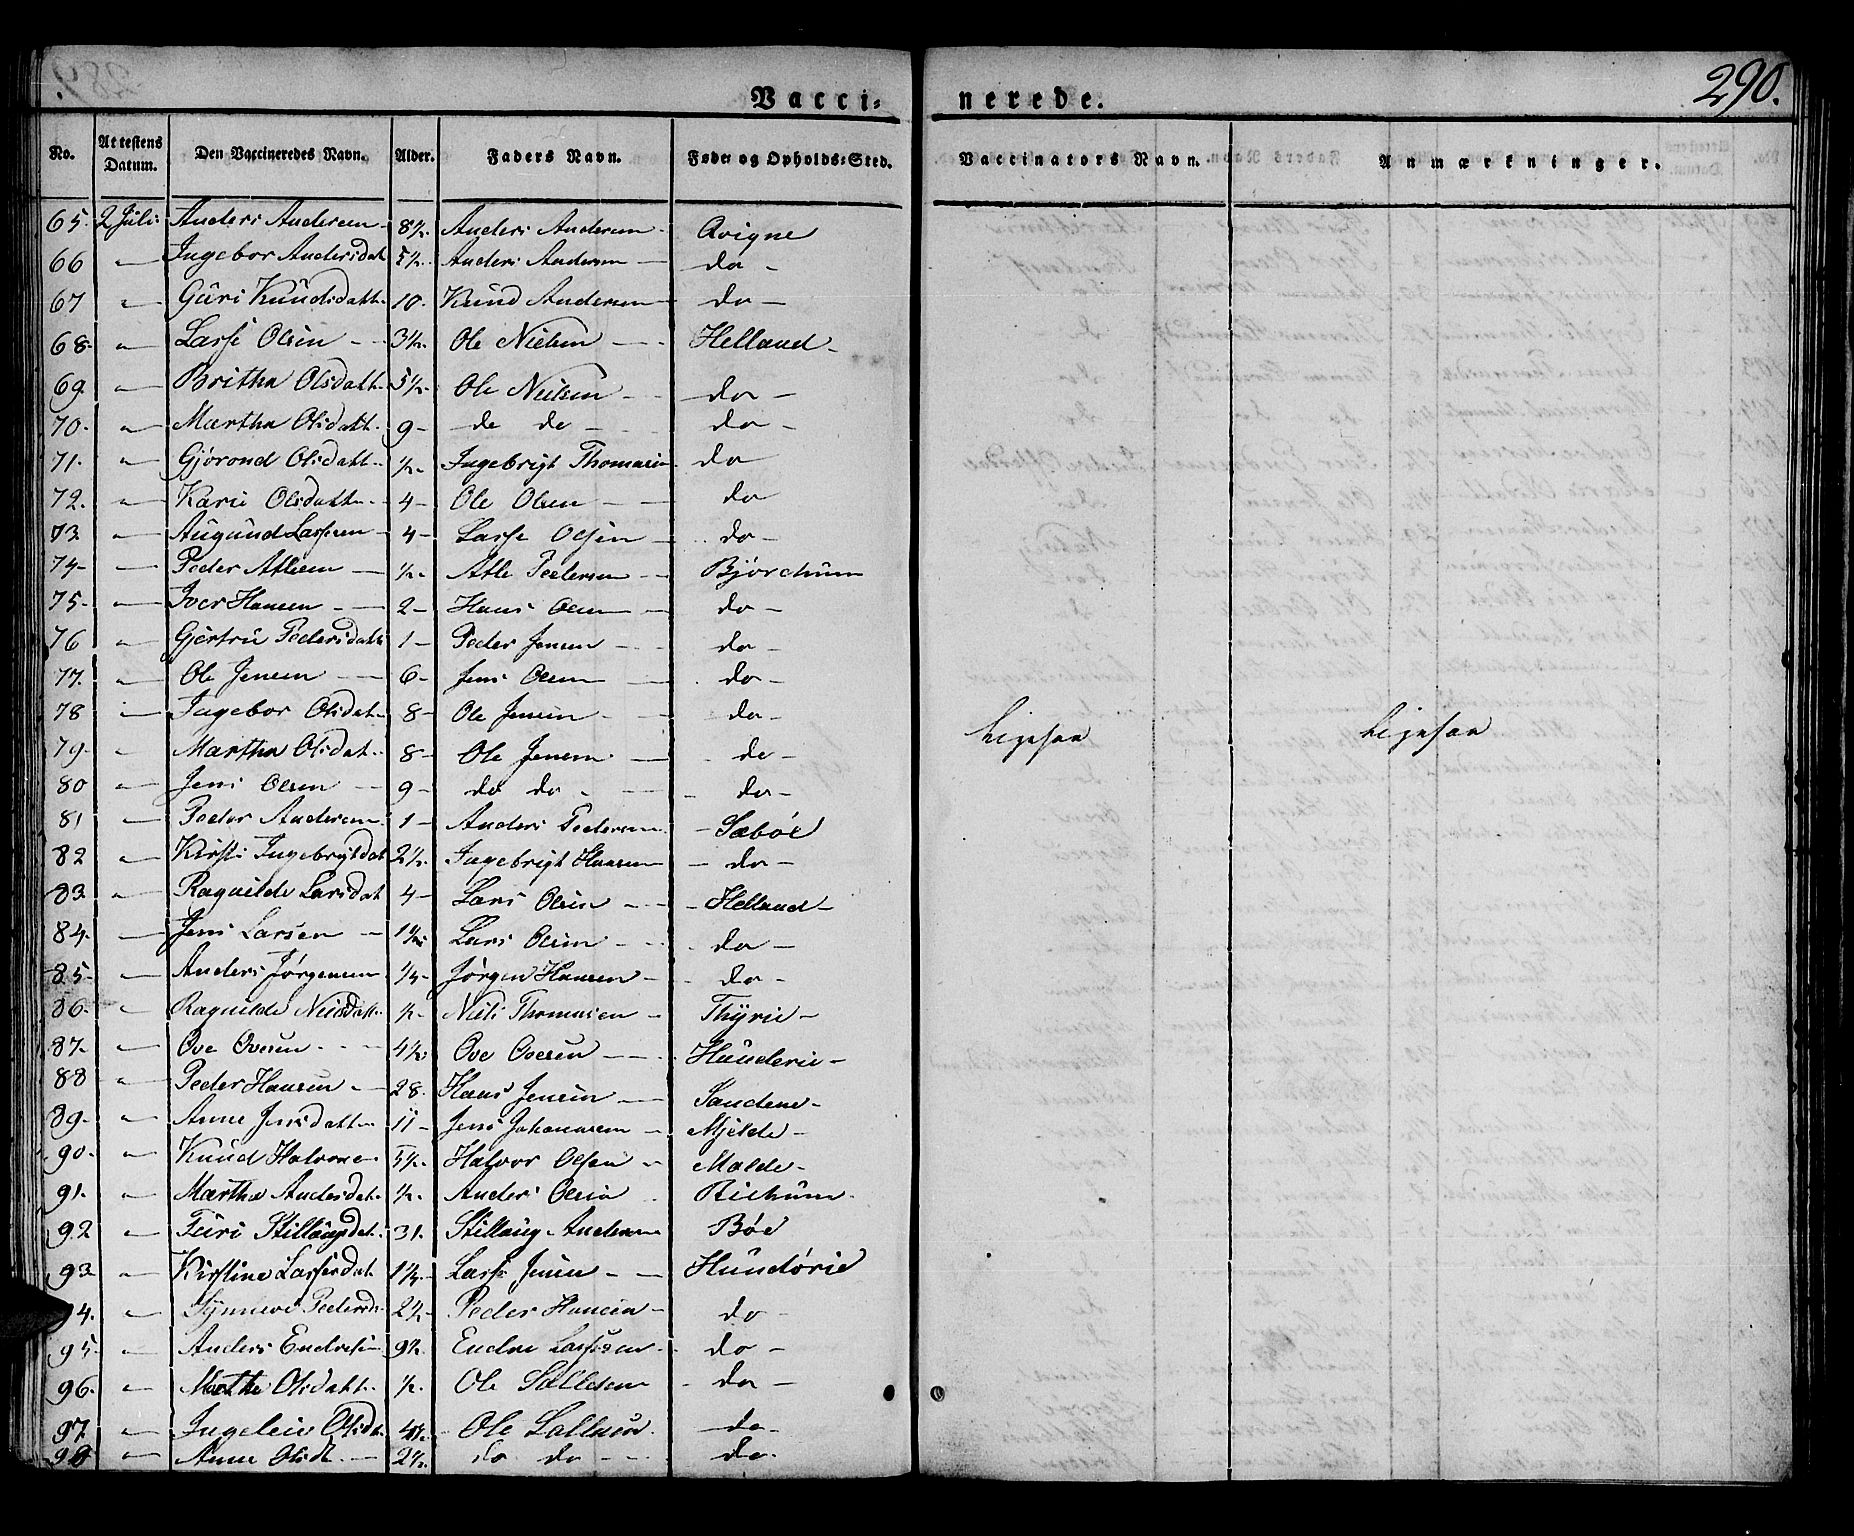 290.
Vacci= nerede.
No. Attestens Datum. Den Vaccineredes Navn. Alder. Faders Navn. Føde- og Opholds-Sted. Vaccinators Navn. Anmærkninger.
65. 2 Juli Anders Andersen 8½. Anders Andersen Qvigne
66 " Ingebor Andersdat 5½. Anders Andersen do
67 " Güri Knüdsdatt 10. Knüd Andersen do
68. " Lasse Olsen 3½. Ole Nielsen Helland
69. " Britha Olsdatt 5½. Ole Nielsen do
70. " Martha Olsdatt. 9 do do do
71. " Gjørond Olsdatt ½. Ingebrigt Thomasen do
72. " Kari Olsdatt 4 Ole Olsen do
73 " Augund Lassesen 4 Lasse Olsen do
74 " Peder Atlesen ½. Atle Pedersen Bjørchum
75. " Iver Hansen 2 Hans Olsen do
76 " Gjertrü Pedersdatt 1 Peder Jensen do
77. " Ole Jensen 6 Jens Olsen do
78 " Ingebor Olsdat 8 Ole Jensen do
79. " Martha Olsdat 8 Ole Jensen do Ligesaa Ligesaa
80 " Jens Olsen 9 do do do
81 " Peder Andersen 1 Anders Pedersen Sæbøe
82 " Kirsti Ingebrigtdat 2½. Ingebrigt Hansen do
83 " Ragnilde Larsdat 4 Lars Olsen Helland
84. " Jens Larsen 1½ Lars Olsen do
85. " Anders Jørgensen ¼ Jørgen Hansen do
86. " Ragnilde Nielsdatt ½ Niels Thomasen Thyrie
87. " Ove Ovesen 4½ Ove Ovesen Hünderie
88 " Peder Hansen 28. Hans Jensen Sandene
89. " Anne Jensdatt 11 Jens Johannesen Mjelde
90. " Knüd Halvorse 5½. Halvor Olsen Malde
91. " Martha Andersdat ½. Anders Olsen Richum
92 " Türi Stillaugsdat. 31. Stillaug Andersen Bøe
93 " Kirstine Lassesdat 1¼ Lasse Jensen Hundørie
94. " Synneve Pedersd 2½ Peder Hansen do
95 " Anders Endresen 9½. Endre Lassesen do
96. " Marthe Olsdatt ½. Ole Sallesen do
97. " Ingeleiv Olsda 4½. Ole do
98 " Anne Olsdt 2½. do do do.